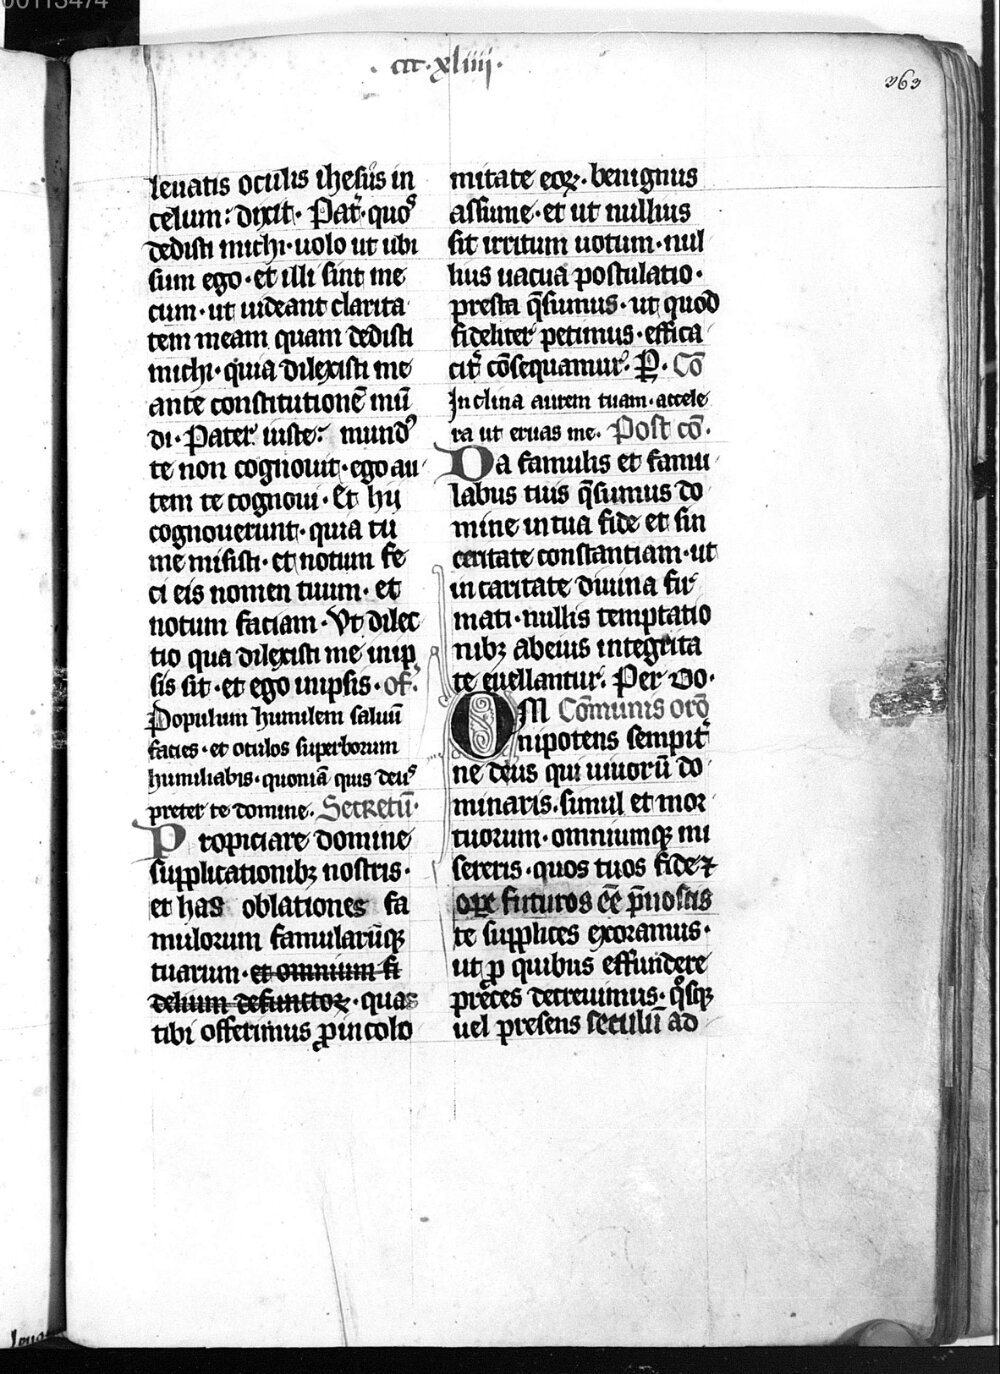 00113474
·ccc·xliiij·
363
leuatis oculis ihesus in
celum: dixit· Pat̉·quoꝰ
dedisti michi·uolo ut ubi
sum ego·et illi sint me
cum·ut uideant clarita
tem meam quam dedisti
michi·quia dilexisti me
ante constitutionē mū
di·Pater iuste: mundꝰ
te non cognouit·ego au
tem te cognoui·Et hij
cognouerunt·quia tu
me misisti·et notum fe
ci eis nomen tuum·et
notum faciam·Vt dilec
tio qua dilexisti me in ip
sis sit·et ego in ipsis·of̉.
Populum humilem saluū
facies·et oculos superborum
humiliabis·quoniā quis deuꝰ
preter te domine. Secretū·
Propiciare domine
supplicationibꝫ nostris·
et has oblationes fa
mulorum famularūqꝫ
tuarum·et omnium fi
delium defunctoꝝ·quas
tibi offerimus ꝓ incolo
mitate eoꝝ·benignus
assume·et ut nullius
sit irritum uotum·nul
lius uacua postulatio·
presta q̄sumus·ut quod
fideliter petimus·effica
cit̉ cōsequamur·P̱·Cō
Inclina aurem tuam·accele
ra ut eruas me. Post cō·
Da famulis et famu
labus tuis q̄sumus do
mine in tua fide et sin
ceritate constantiam·ut
in caritate diuina fir
mati·nullis temptatio
nibꝫ ab eius integrita
te euellantur. Per do·
OM Cōmunis orō
nipotens sempit̉
ne deus qui uiuorū do
minaris.simul et mor
tuorum·omniumqꝫ mi
sereris·quos tuos fide ⁊
oꝑe futuros ēē p̄noscis
te supplices exoramus·
ut ꝓ quibus effundere
preces decreuimus·qͦsqꝫ
uel presens seculū ad